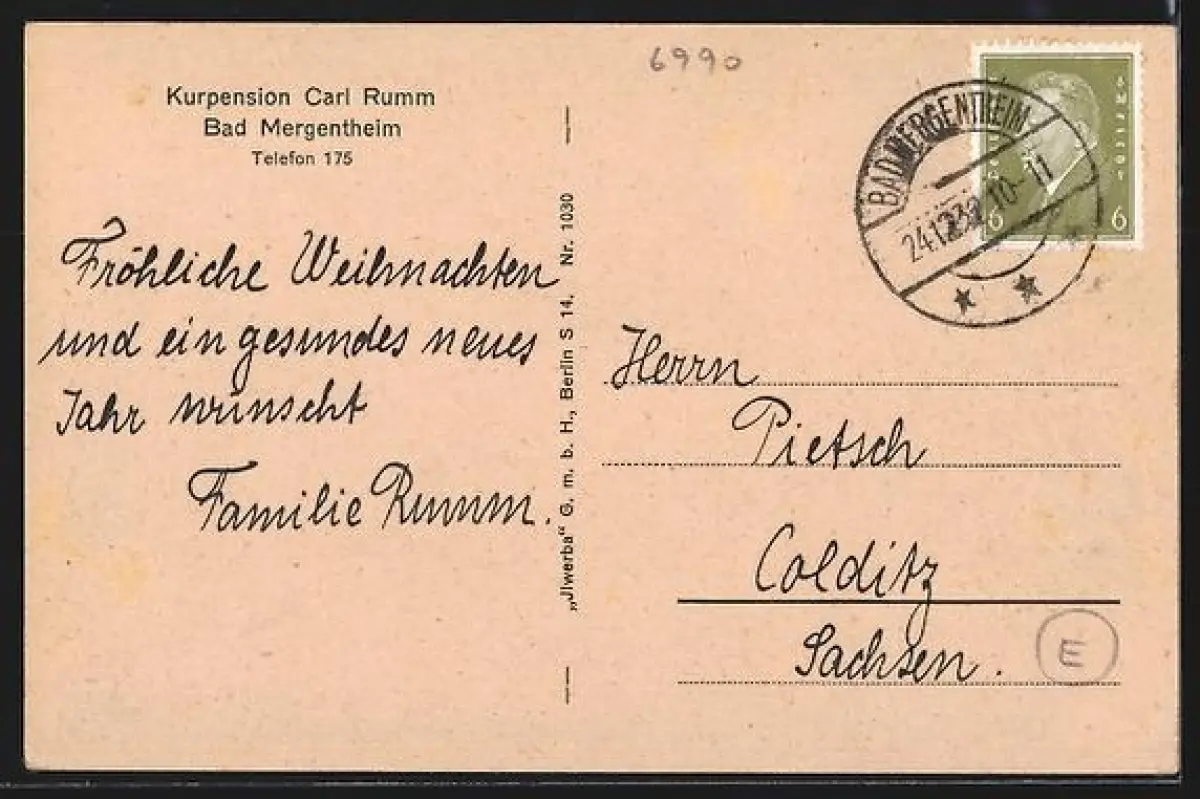 Kurpension Carl Rumm
Bad Mergentheim
Telefon 175
Fröhliche Weihnachten
und ein gesundes neues
Jahr wünscht
Familie Rumm.
„Jlwerba“ G. m. b. H., Berlin S 14. Nr. 1030
6990
BAD MERGENTHEIM
10-11
6 6
Herrn
Pietsch
Colditz
Sachsen.
E